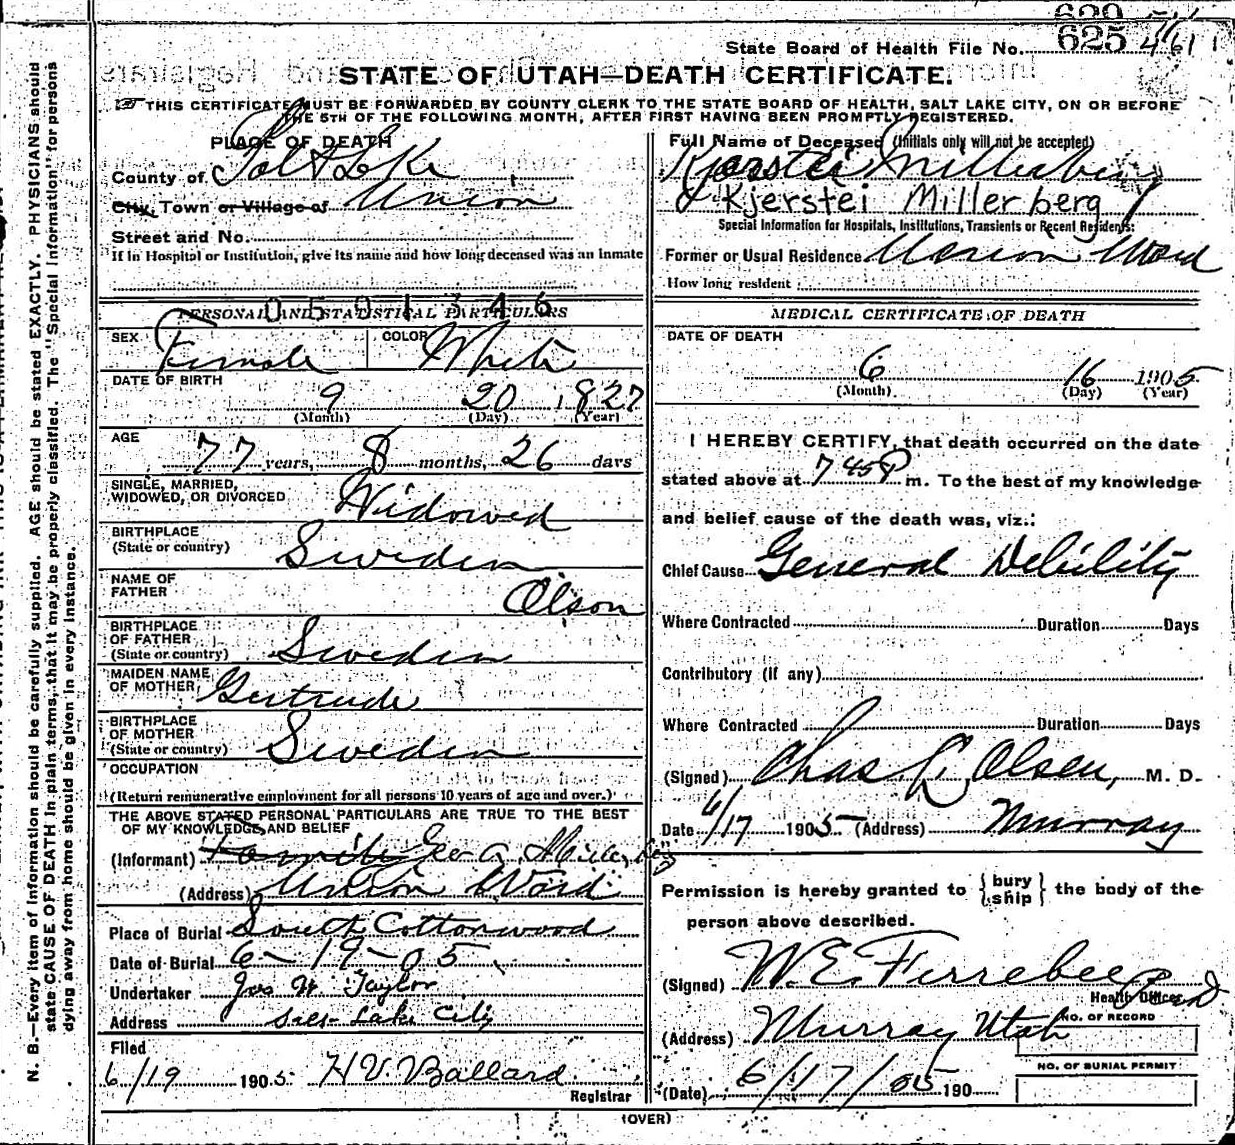 629
State Board of Health File No. 625 461
STATE OF UTAH—DEATH CERTIFICATE.
☞ THIS CERTIFICATE MUST BE FORWARDED BY COUNTY CLERK TO THE STATE BOARD OF HEALTH, SALT LAKE CITY, ON OR BEFORE
THE 5TH OF THE FOLLOWING MONTH, AFTER FIRST HAVING BEEN PROMPTLY REGISTERED.
PLACE OF DEATH
County of Salt Lake
City, Town or Village of Union
Street and No.
If in Hospital or Institution, give its name and how long deceased was an inmate
0501346
PERSONAL AND STATISTICAL PARTICULARS
SEX Female COLOR White
DATE OF BIRTH
9 20 1827
(Month) (Day) (Year)
AGE
77 years, 8 months, 26 days
SINGLE, MARRIED,
WIDOWED, OR DIVORCED Widowed
BIRTHPLACE
(State or country) Sweden
NAME OF
FATHER Olson
BIRTHPLACE
OF FATHER
(State or country) Sweden
MAIDEN NAME
OF MOTHER Gertrude
BIRTHPLACE
OF MOTHER
(State or country) Sweden
OCCUPATION
(Return remunerative employment for all persons 10 years of age and over.)
THE ABOVE STATED PERSONAL PARTICULARS ARE TRUE TO THE BEST
OF MY KNOWLEDGE AND BELIEF
(Informant) Family Geo A. Millerberg
(Address) Union Ward
Place of Burial South Cottonwood
Date of Burial 6-19-05
Undertaker Jos W. Taylor
Address Salt Lake City
Filed
6/19 1905 H V. Ballard
Registrar
Full Name of Deceased (Initials only will not be accepted)
Kjerstei Millerberg
Kjerstei Millerberg
Special Information for Hospitals, Institutions, Transients or Recent Residents:
Former or Usual Residence Union Ward
How long resident
MEDICAL CERTIFICATE OF DEATH
DATE OF DEATH
6 16 1905
(Month) (Day) (Year)
I HEREBY CERTIFY, that death occurred on the date
stated above at 7 45 P m. To the best of my knowledge
and belief cause of the death was, viz.:
Chief Cause General Debility
Where Contracted Duration Days
Contributory (if any)
Where Contracted Duration Days
(Signed) Chas L Olsen, M. D.
Date 6/17 1905 (Address) Murray
Permission is hereby granted to { bury
ship } the body of the
person above described.
(Signed) W.E. Ferrebee
Health Officer
NO. OF RECORD
(Address) Murray Utah
NO. OF BURIAL PERMIT
(Date) 6/17/05 190
(OVER)
N. B.—Every item of information should be carefully supplied. AGE should be stated EXACTLY. PHYSICIANS should
state CAUSE OF DEATH in plain terms, that it may be properly classified. The "Special Information" for persons
dying away from home should be given in every instance.